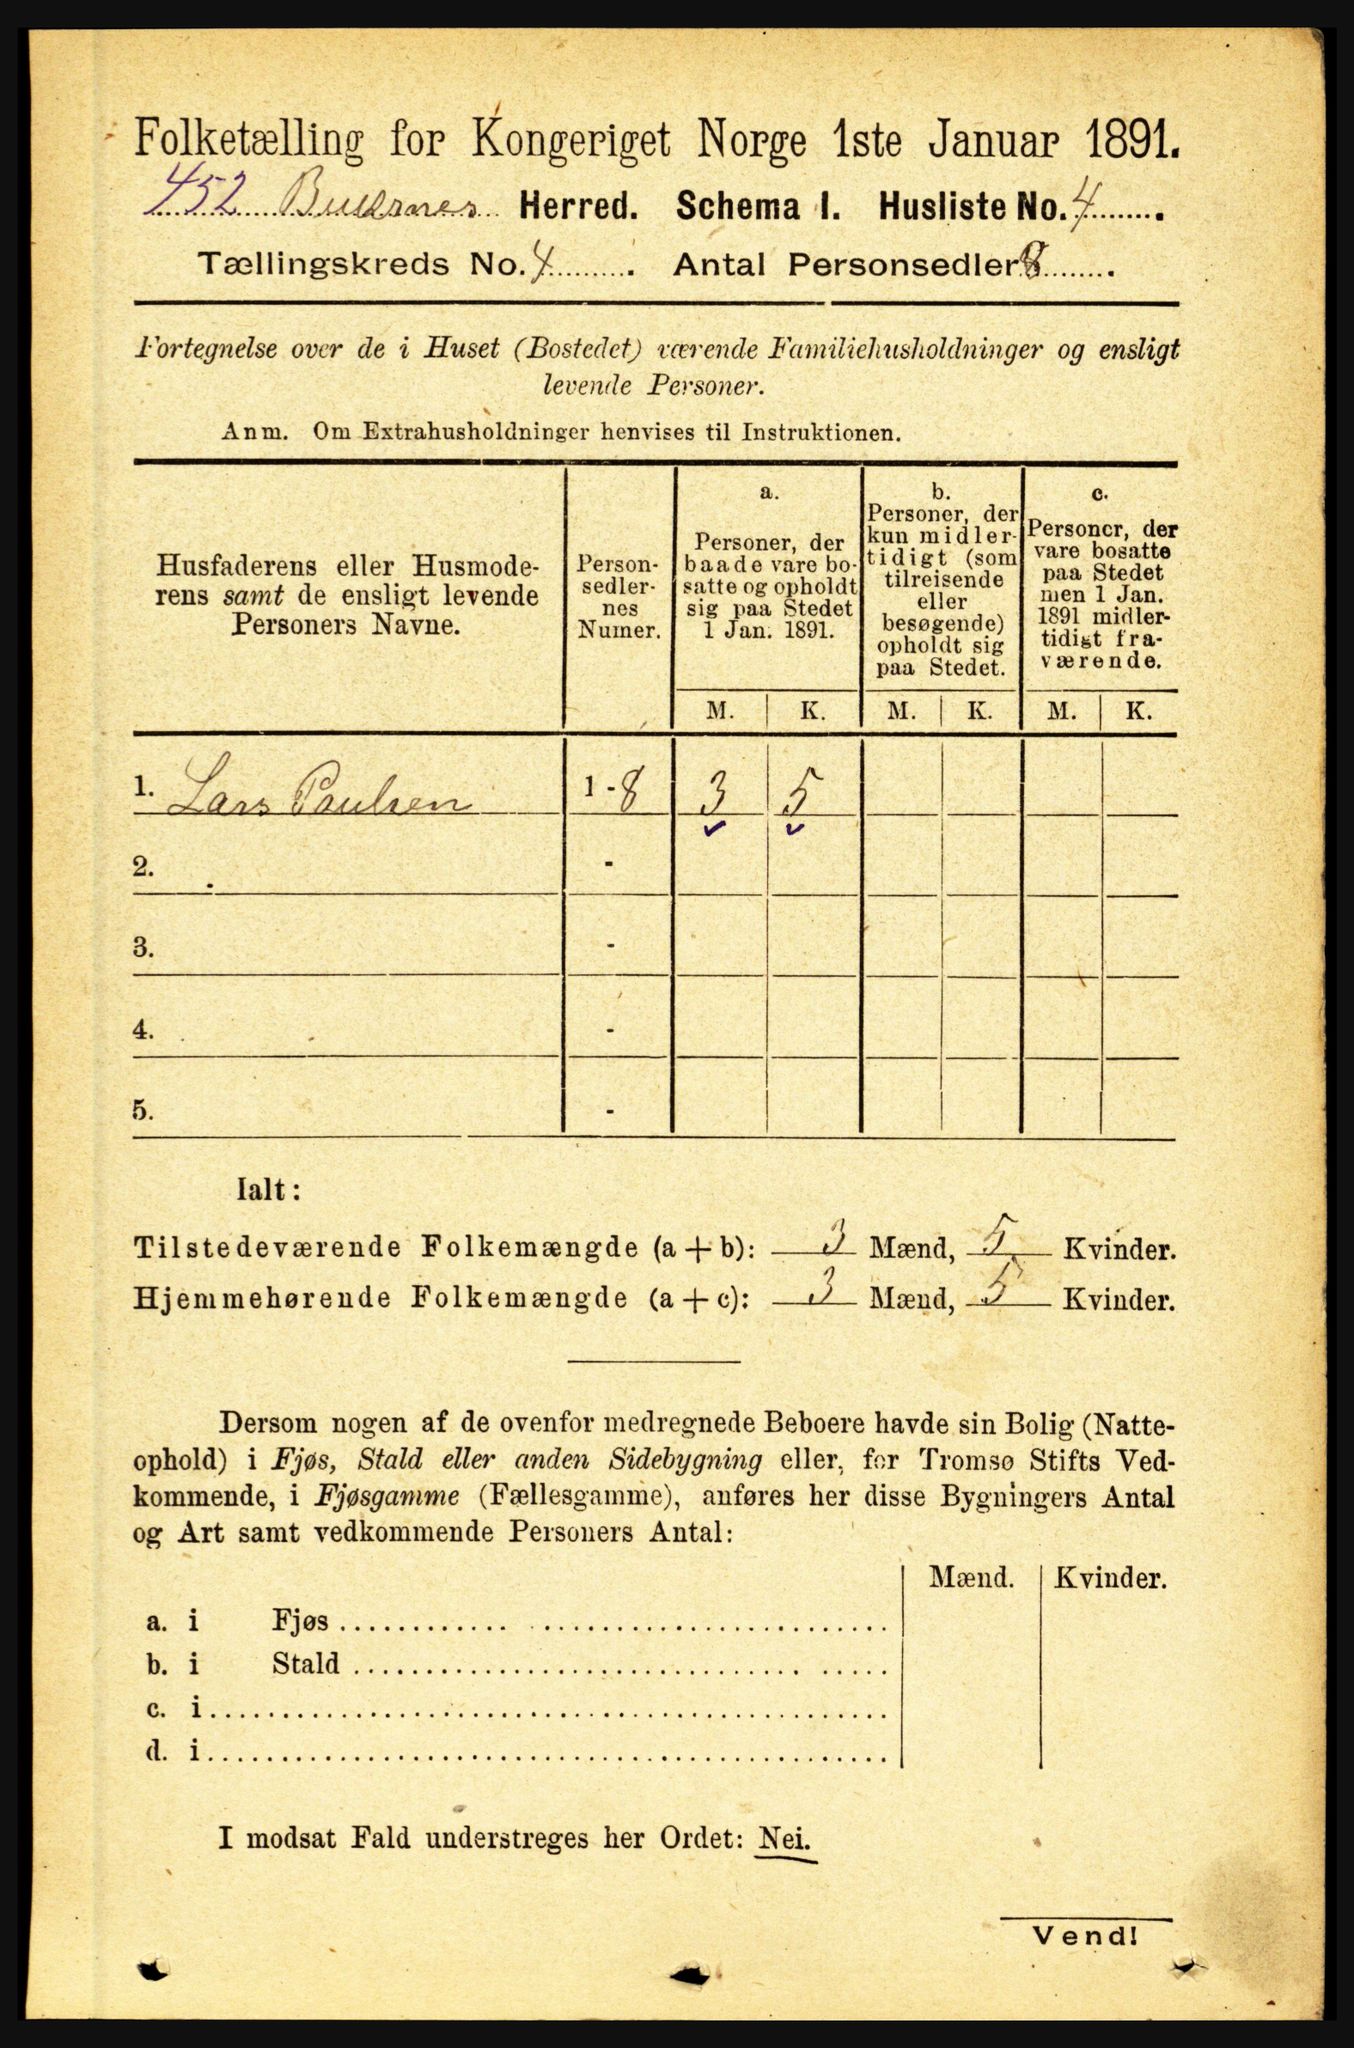 Folketælling for Kongeriget Norge 1ste Januar 1891.
452 Buksnes Herred. Schema I. Husliste No. 4.
Tællingskreds No. 4. Antal Personsedler 8.
Fortegnelse over de i Huset (Bostedet) værende Familiehusholdninger og ensligt
levende Personer.
Anm. Om Extrahusholdninger henvises til Instruktionen.
Husfaderens eller Husmode-
rens samt de ensligt levende
Personers Navne.
Person-
sedler-
nes
Numer.
a.
Personer, der
baade vare bo-
satte og opholdt
sig paa Stedet
1 Jan. 1891.
b.
Personer, der
kun midler-
tidigt (som
tilreisende
eller
besøgende)
opholdt sig
paa Stedet.
c.
Personer, der
vare bosatte
paa Stedet
men 1 Jan.
1891 midler-
tidigt fra-
værende.
M. K. M. K. M. K.
1. Lars Paulsen 1 - 8 3 5
2. -
3. -
4. -
5. -
Ialt:
Tilstedeværende Folkemængde (a + b): 3 Mænd, 5 Kvinder.
Hjemmehørende Folkemængde (a + c): 3 Mænd, 5 Kvinder.
Dersom nogen af de ovenfor medregnede Beboere havde sin Bolig (Natte-
ophold) i Fjøs, Stald eller anden Sidebygning eller, for Tromsø Stifts Ved-
kommende, i Fjøsgamme (Fællesgamme), anføres her disse Bygningers Antal
og Art samt vedkommende Personers Antal:
Mænd. Kvinder.
a. i Fjøs
b. i Stald
c. i
d. i
I modsat Fald understreges her Ordet: Nei.
Vend!